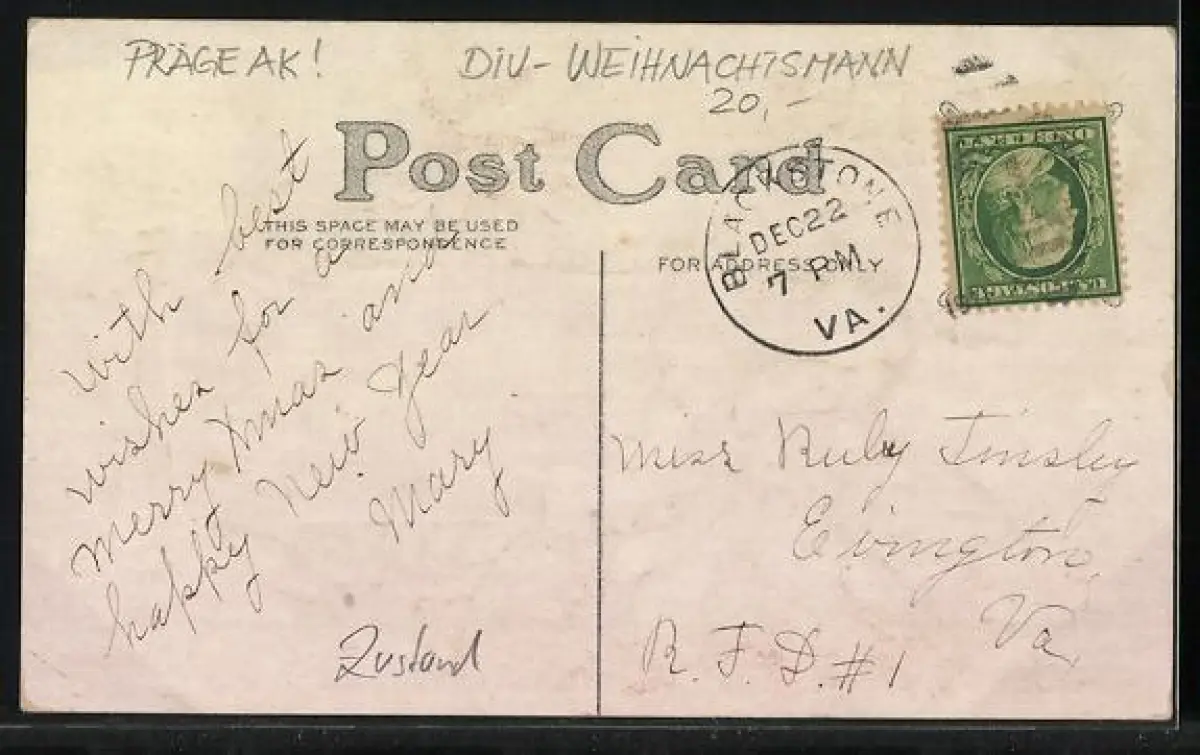 PRÄGEAK! DIV-WEIHNACHTSMANN
20,-
Post Card
THIS SPACE MAY BE USED
FOR CORRESPONDENCE
FOR ADDRESS ONLY
BLACKSTONE
DEC 22
7 PM
VA.
With best
wishes for a
merry Xmas and
happy New Year
Mary
Zustand
Miss Ruby Tinsley
Evington,
Va,
R. F. D. #1